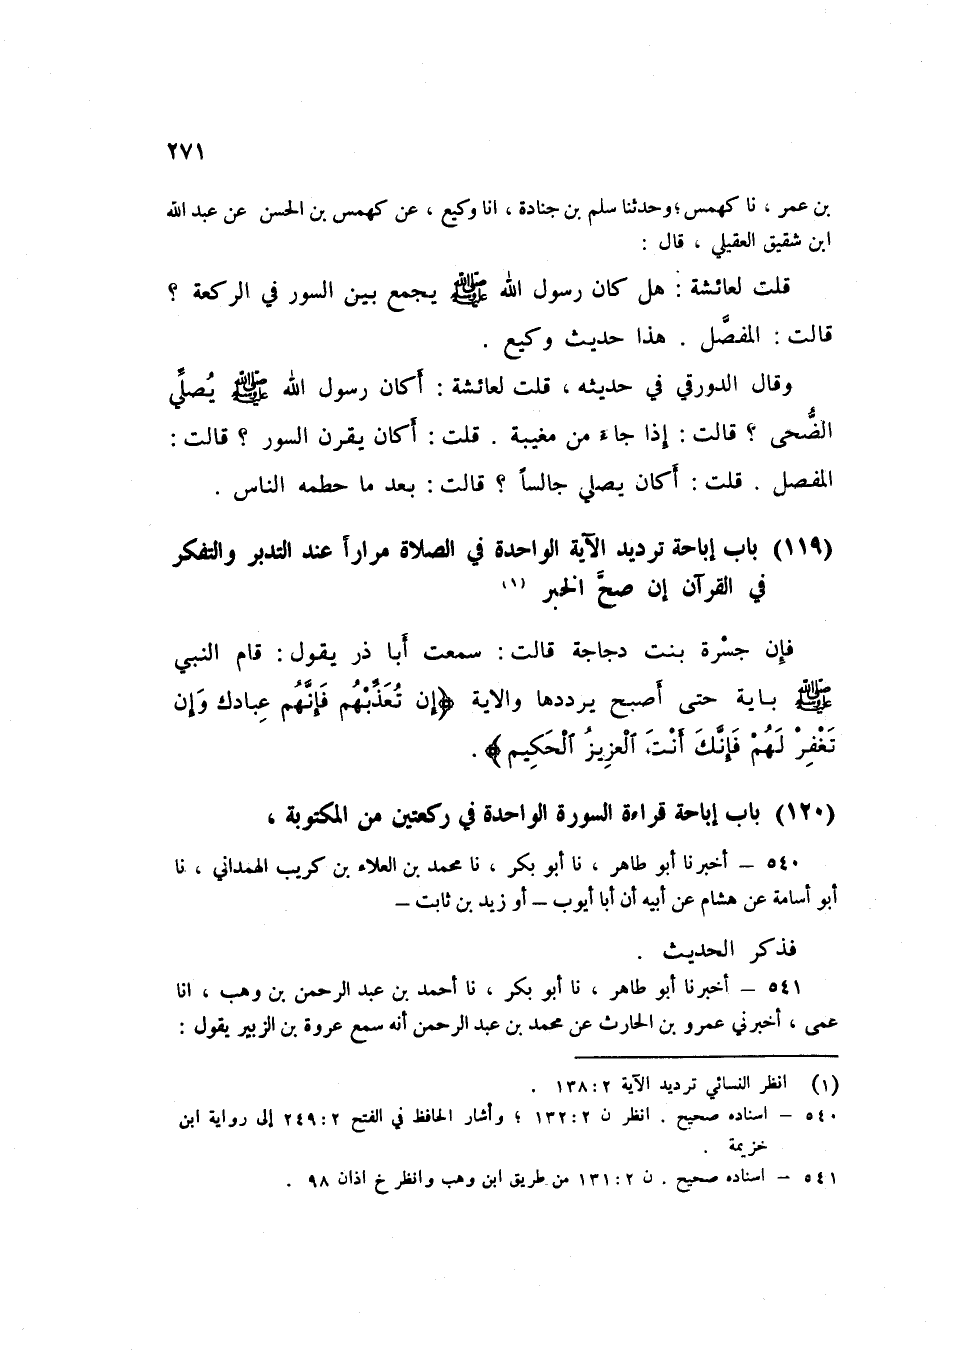 ٢٧١
بن عمر ، نا كهمس ؛ وحدثنا سلم بن جنادة ، انا وكيع ، عن كهمس بن الحسن عن عبد الله
ابن شقيق العقيلي ، قال :
قلت لعائشة : هل كان رسول الله ﷺ يجمع بين السور في الركعة ؟
قالت : المفصَّل . هذا حديث وكيع .
وقال الدورقي في حديثه ، قلت لعائشة : أكان رسول الله ﷺ يُصلِّي
الضُّحى ؟ قالت : إذا جاء من مغيبة . قلت : أكان يقرن السور ؟ قالت :
المفصل . قلت : أكان يصلي جالساً ؟ قالت : بعد ما حطمه الناس .
(١١٩) باب إباحة ترديد الآية الواحدة في الصلاة مراراً عند التدبر والتفكر
في القرآن إن صحَّ الخبر (١)
فإن جسْرة بنت دجاجة قالت : سمعت أبا ذر يقول : قام النبي
ﷺ باية حتى أصبح يرددها والاية ﴿إن تُعَذِّبْهُم فَإِنَّهُم عِبادك وَإِن
تَغْفِرْ لَهُمْ فَإِنَّكَ أَنْتَ ٱلْعزِيزُ ٱلْحَكِيم﴾ .
(١٢٠) باب إباحة قراءة السورة الواحدة في ركعتين من المكتوبة ،
٥٤٠ – أخبرنا أبو طاهر ، نا أبو بكر ، نا محمد بن العلاء بن كريب الهمداني ، نا
أبو أسامة عن هشام عن أبيه أن أبا أيوب – أو زيد بن ثابت –
فذكر الحديث .
٥٤١ – أخبرنا أبو طاهر ، نا أبو بكر ، نا أحمد بن عبد الرحمن بن وهب ، انا
عمى ، أخبرني عمرو بن الحارث عن محمد بن عبد الرحمن أنه سمع عروة بن الزبير يقول :
(١) انظر النسائي ترديد الآية ٢ : ١٣٨ .
٥٤٠ – اسناده صحيح . انظر ن ٢ : ١٣٢ ؛ وأشار الحافظ في الفتح ٢ : ٢٤٩ إلى رواية ابن
خزيمة .
٥٤١ – اسناده صحيح . ن ٢ : ١٣١ من طريق ابن وهب وانظر خ اذان ٩٨ .